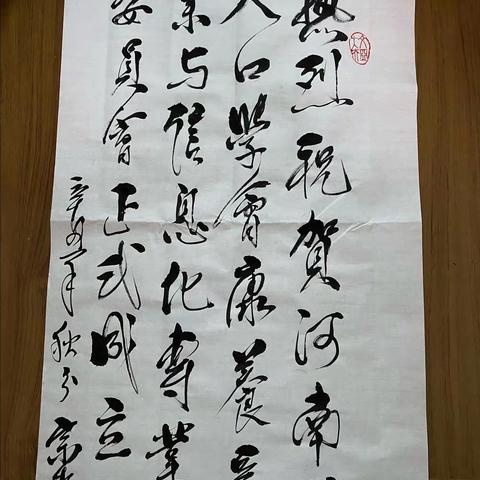 热烈祝贺河南
人口学会康养
业与信息化专業
委員會正式成立
辛丑年秋分